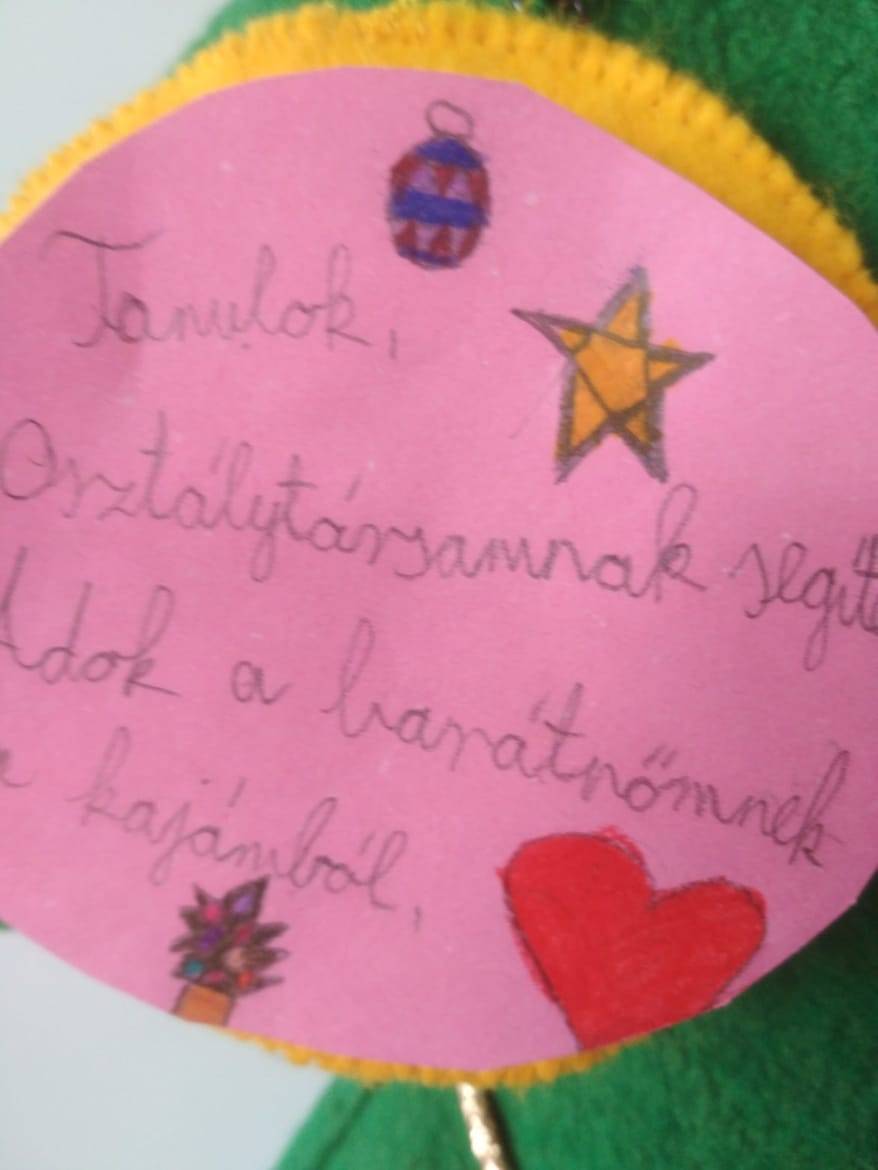 Tanulok,
Osztálytársamnak segít
Adok a barátnőmnek
a kajámból,